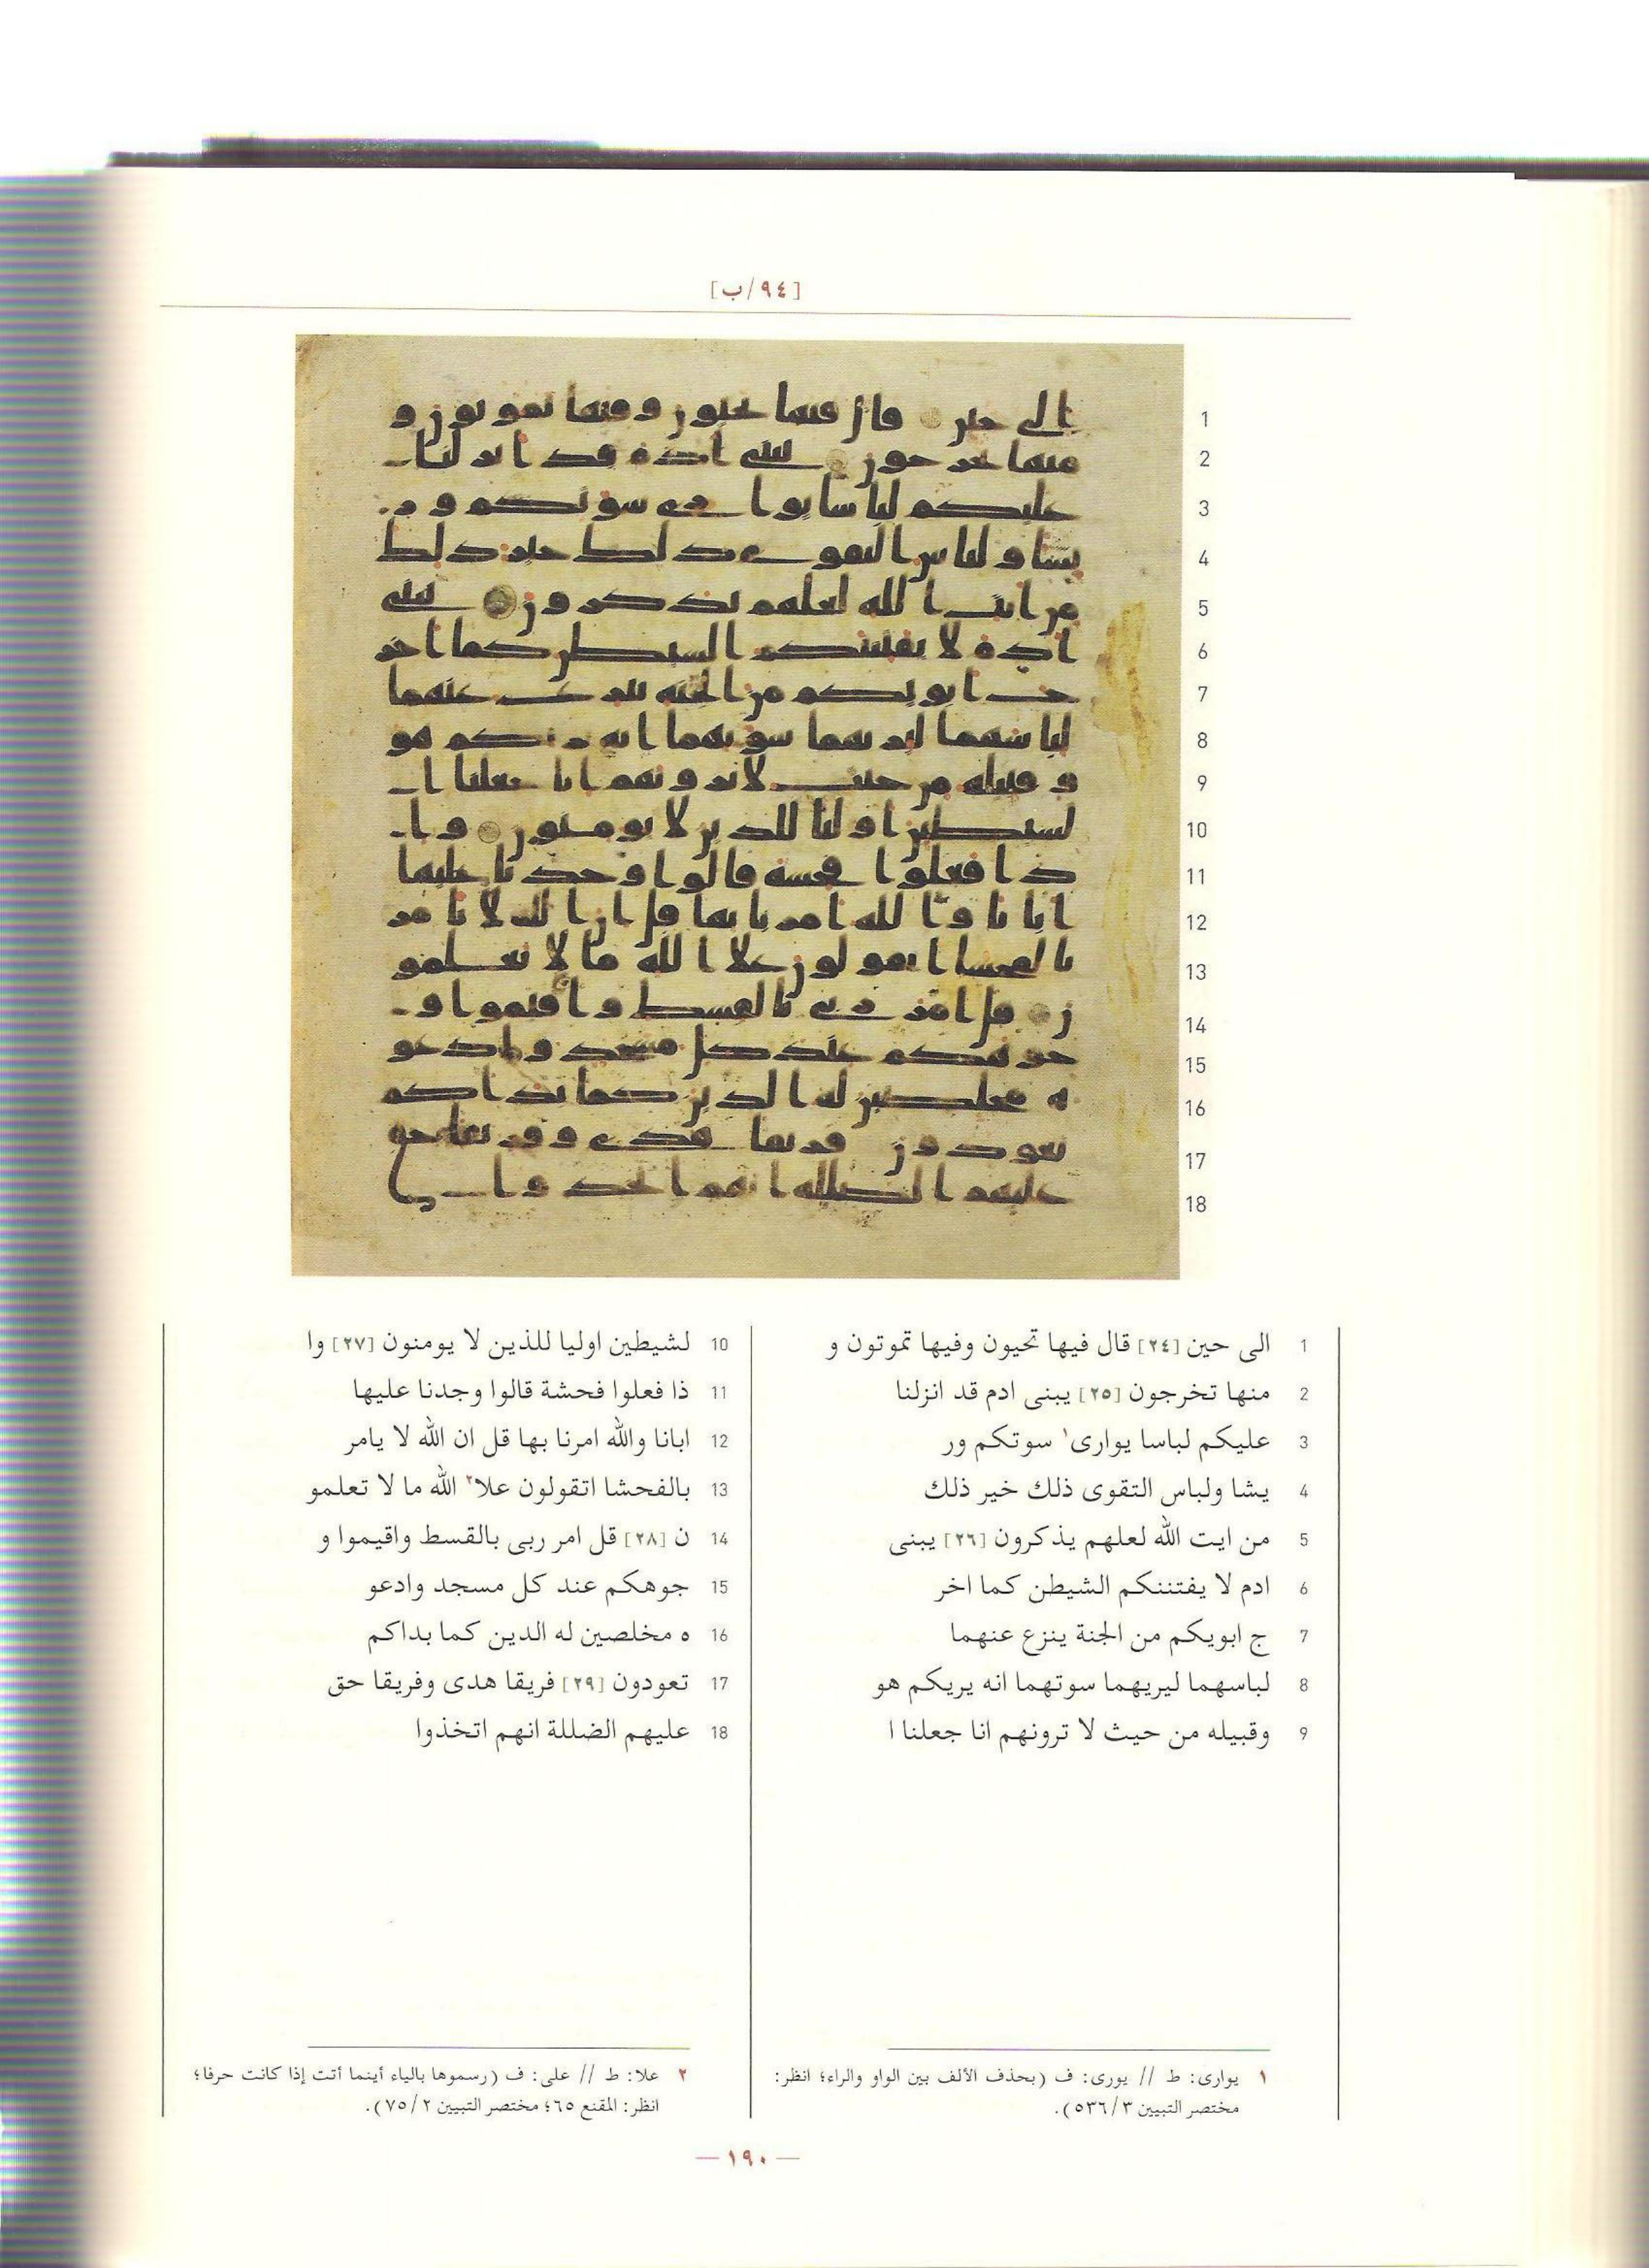 [٩٤/ب]
1 الى حين [٢٤] قال فيها تحيون وفيها تموتون و
2 منها تخرجون [٢٥] يبنى ادم قد انزلنا
3 عليكم لباسا يوارى١ سوتكم ور
4 يشا ولباس التقوى ذلك خير ذلك
5 من ايت الله لعلهم يذكرون [٢٦] يبنى
6 ادم لا يفتننكم الشيطن كما اخر
7 ج ابويكم من الجنة ينزع عنهما
8 لباسهما ليريهما سوتهما انه يريكم هو
9 وقبيله من حيث لا ترونهم انا جعلنا ا
10 لشيطين اوليا للذين لا يومنون [٢٧] وا
11 ذا فعلوا فحشة قالوا وجدنا عليها
12 ابانا والله امرنا بها قل ان الله لا يامر
13 بالفحشا اتقولون علا٢ الله ما لا تعلمو
14 ن [٢٨] قل امر ربى بالقسط واقيموا و
15 جوهكم عند كل مسجد وادعو
16 ه مخلصين له الدين كما بداكم
17 تعودون [٢٩] فريقا هدى وفريقا حق
18 عليهم الضللة انهم اتخذوا
١ يوارى: ط // يورى: ف (بحذف الألف بين الواو والراء؛ انظر:
مختصر التبيين ٥٣٦/٣).
٢ علا: ط // على: ف (رسموها بالياء أينما أتت إذا كانت حرفا؛
انظر: المقنع ٦٥؛ مختصر التبيين ٧٥/٢).
— ١٩٠ —